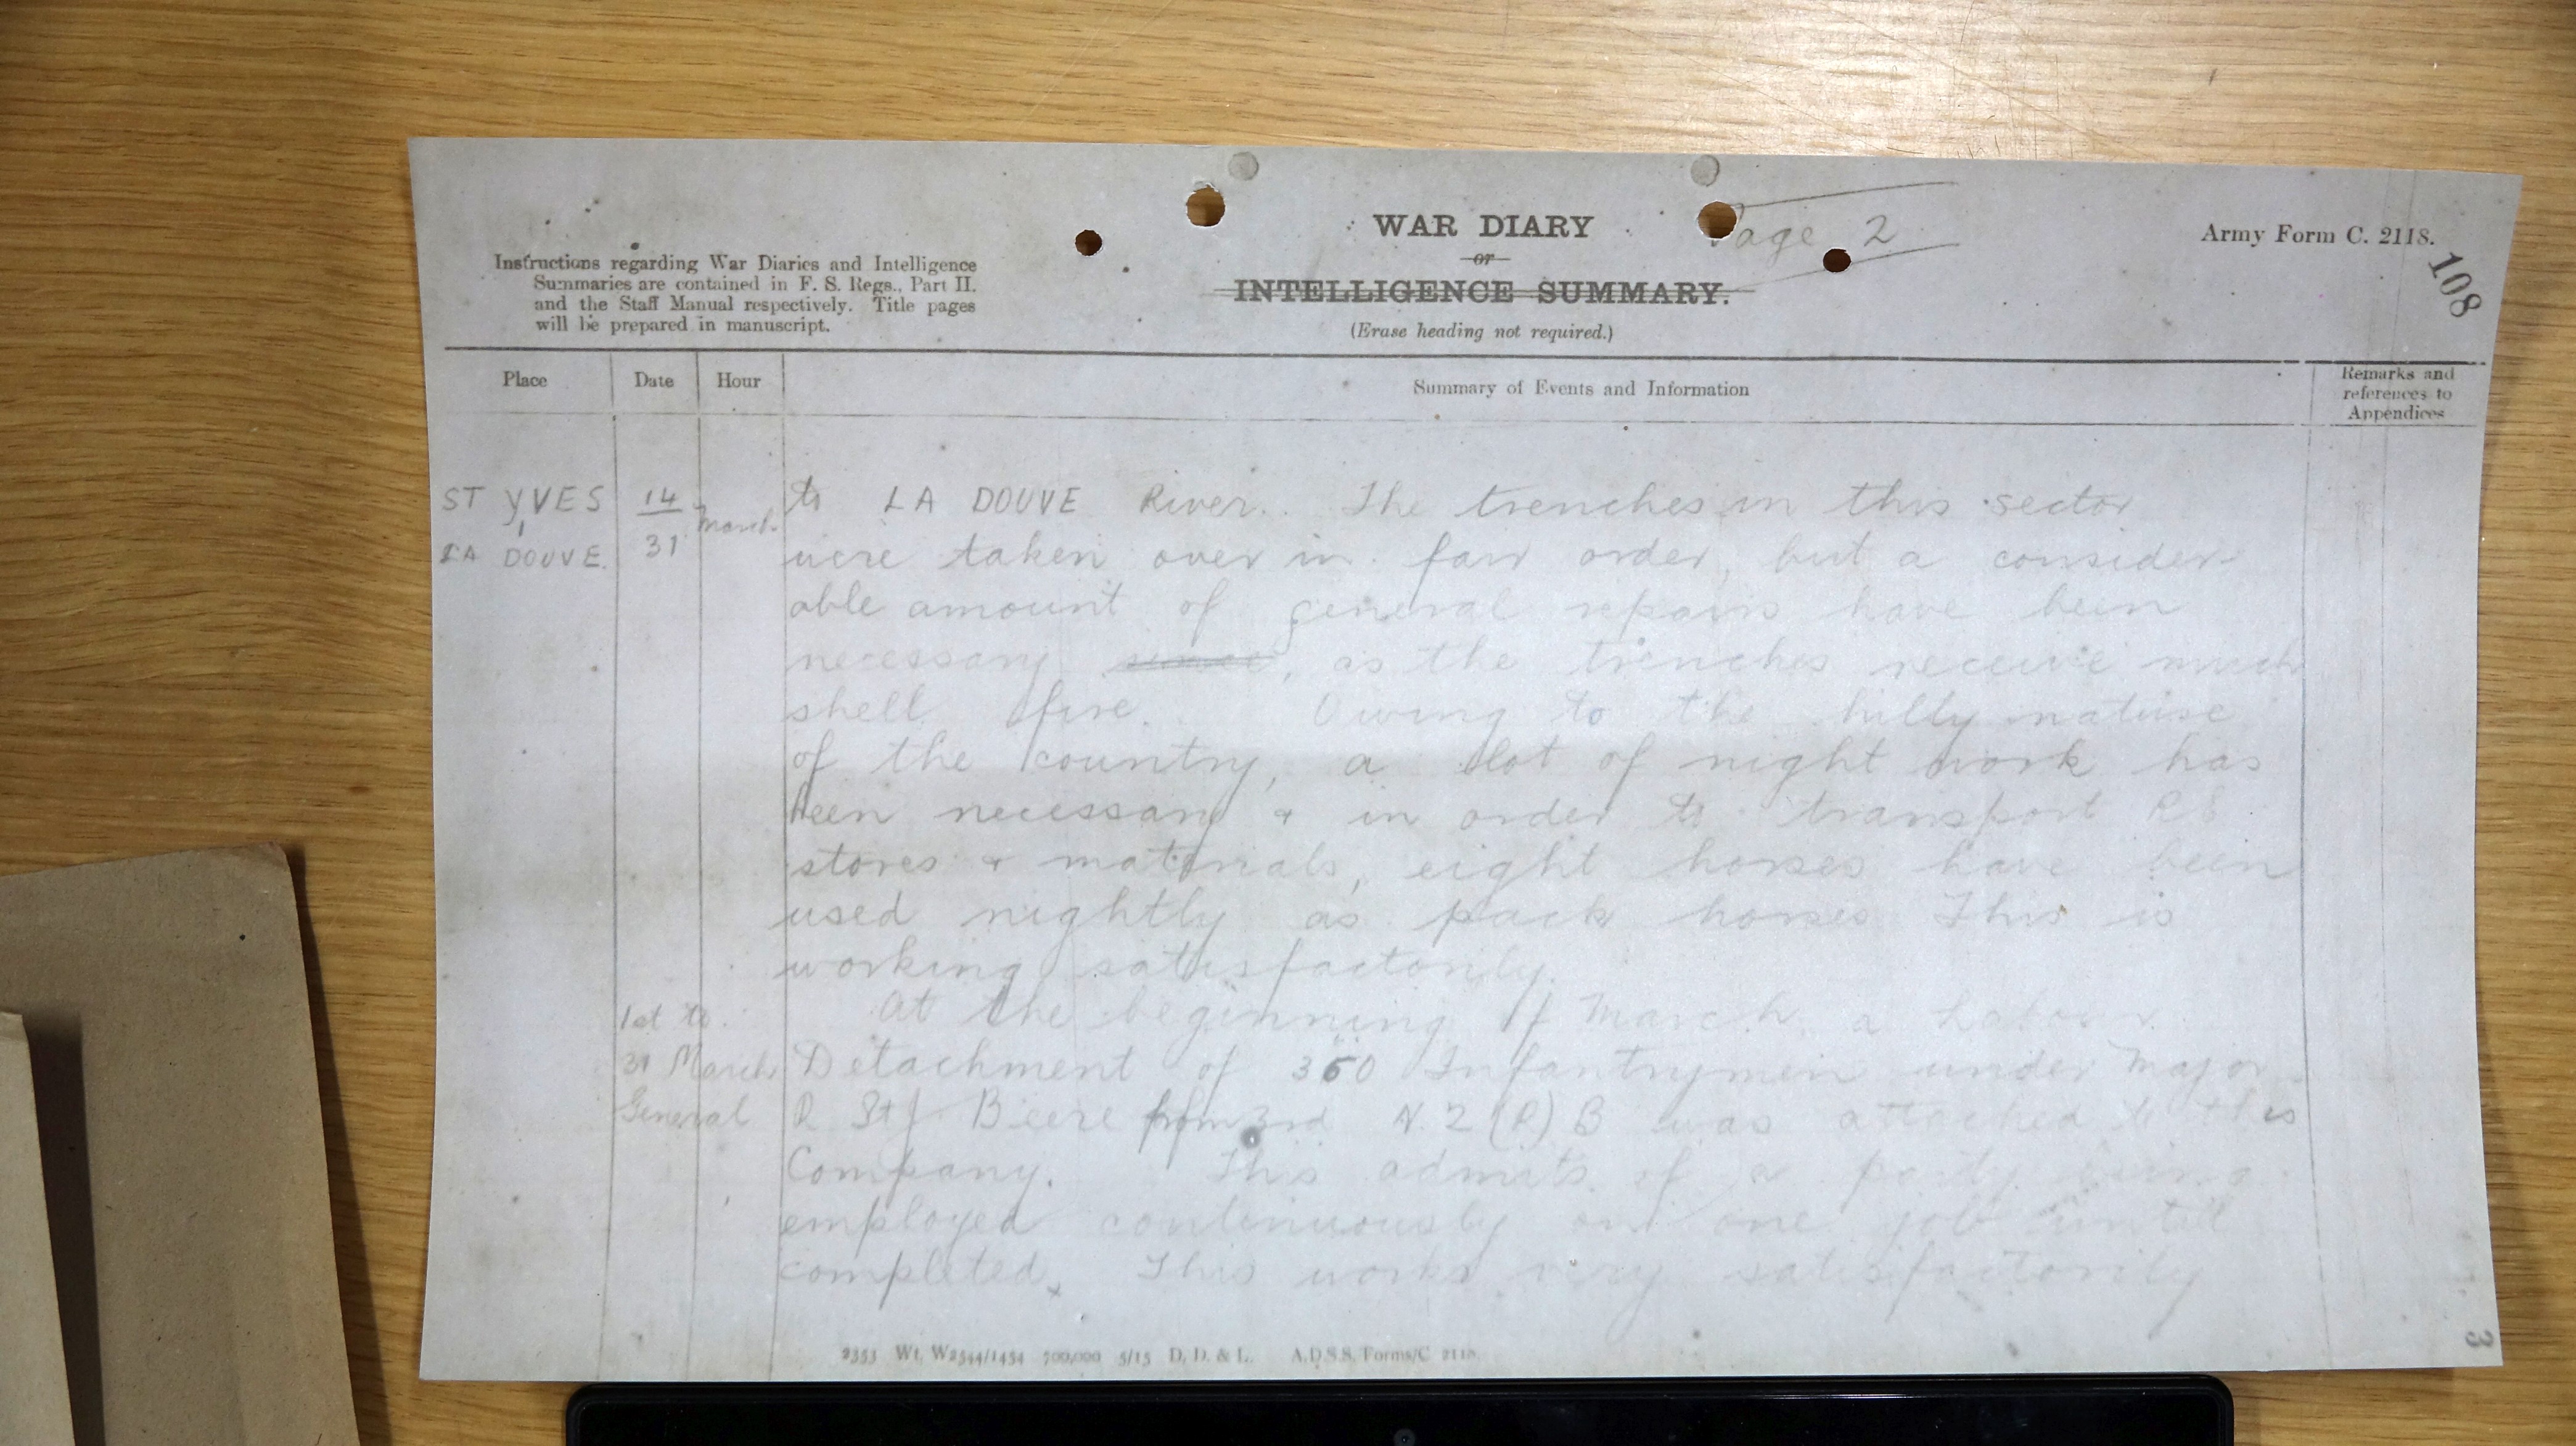 WAR DIARY
or
INTELLIGENCE SUMMARY.
(Erase heading not required.)
Page 2
Army Form C. 2118.
108
Instructions regarding War Diaries and Intelligence
Summaries are contained in F. S. Regs., Part II.
and the Staff Manual respectively. Title pages
will be prepared in manuscript.
Place Date Hour Summary of Events and Information Remarks and
references to
Appendices
ST YVES 14 March to LA DOUVE River. The trenches in this sector
LA DOUVE. 31 were taken over in fair order, but a consider-
able amount of general repairs have been
necessary since, as the trenches receive much
shell fire. Owing to the hilly nature
of the country, a lot of night work has
been necessary & in order to transport RE
stores & materials, eight horses have been
used nightly as pack horses This is
working satisfactorily.
1st to At the beginning of March a Labour
31 March Detachment of 350 Infantrymen under Major
General R St J Beere from 3rd N.Z (R) B was attached to this
Company. This admits of a party being
employed continuously on one job until
completed. This works very satisfactorily
2353 Wt. W2544/1454 700,000 5/15 D. D. & L. A.D.S.S. Forms/C 2118.
3